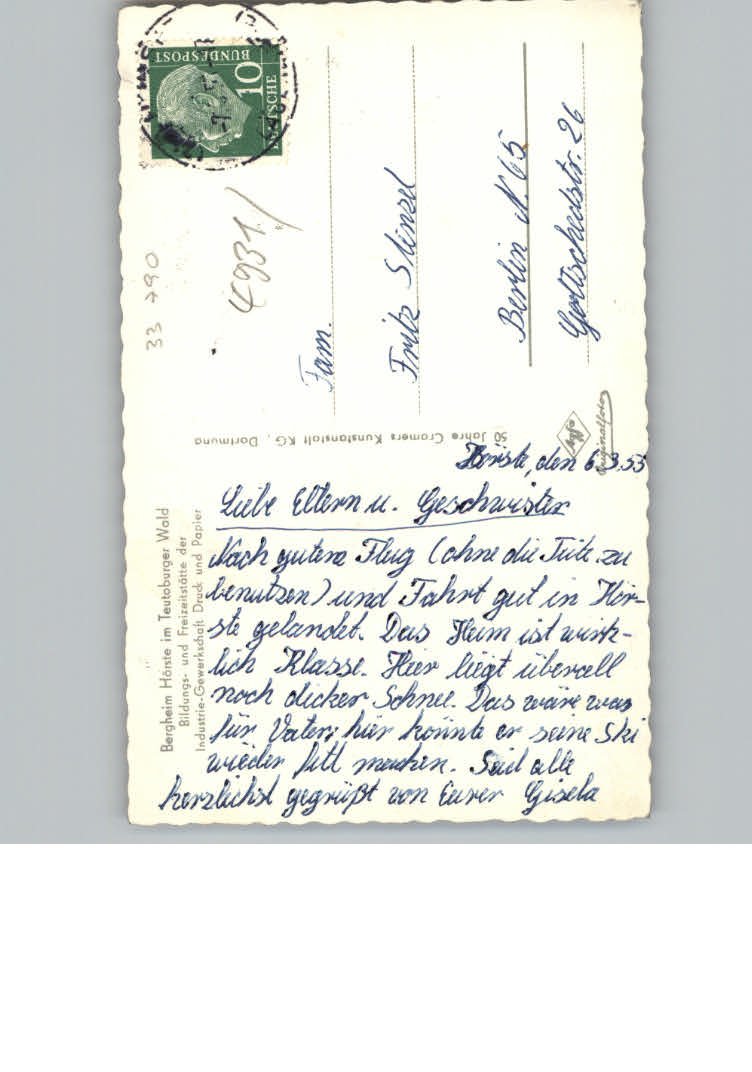 Bergheim Hörste im Teutoburger Wald
Bildungs- und Freizeitstätte der
Industrie-Gewerkschaft Druck und Papier
Hörste, den 6.3.55
Liebe Eltern u. Geschwister
Nach gutem Flug (ohne die Tüte zu
benutzen) und Fahrt gut in Hör-
ste gelandet. Das Heim ist wirk-
lich Klasse. Hier liegt überall
noch dicker Schnee. Das wäre was
für Vater, hier könnte er seine Ski
wieder fitt machen. Seid alle
herzlichst gegrüßt von Eurer Gisela
50 Jahre Cramers Kunstanstalt KG, Dortmund
Agfa
Originalfoto
Fam.
Fritz Stenzel
Berlin N. 65
Gottschedstr. 26
DEUTSCHE
BUNDESPOST
10
4931/
33 790